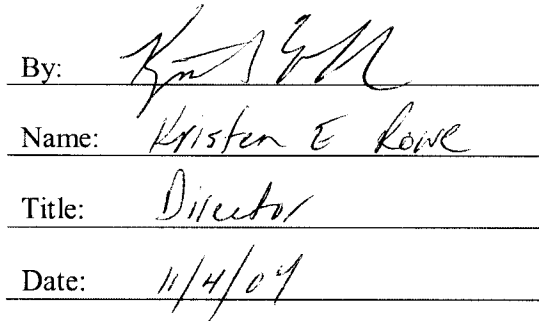 By:
Name: Kristen E Rowe
Title: Director
Date: 11/4/09